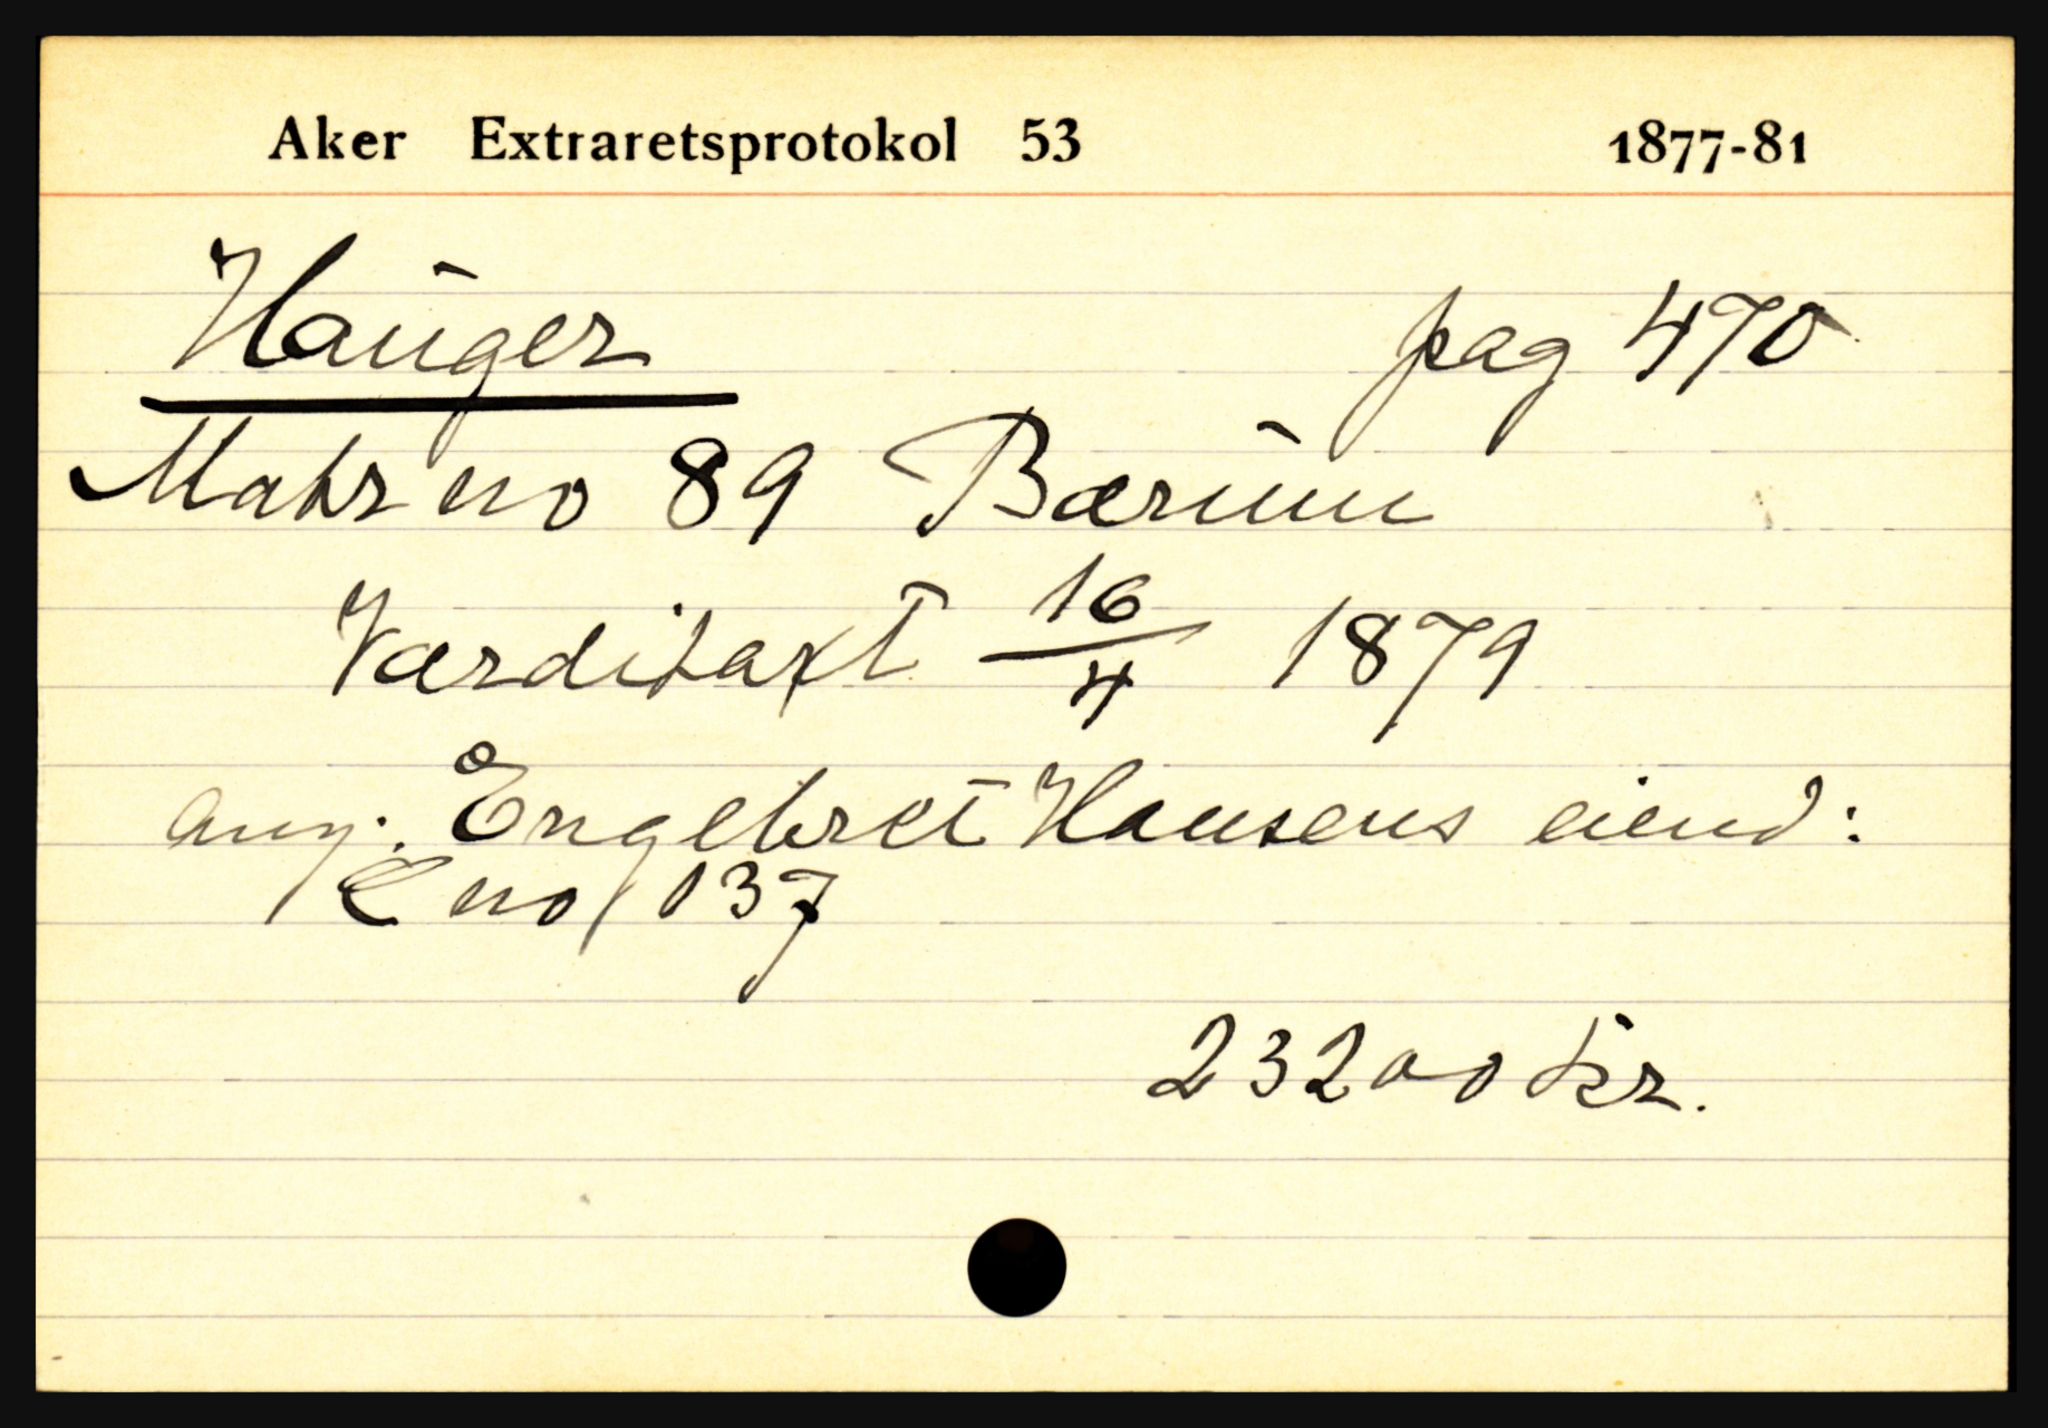 Aker Extraretsprotokol 53 1877-81
Hauger pag 470
Matr no 89 Bærum
Værditaxt 16/4 1879
ang. Engebret Hansens eiend:
L no 137
23200 kr.